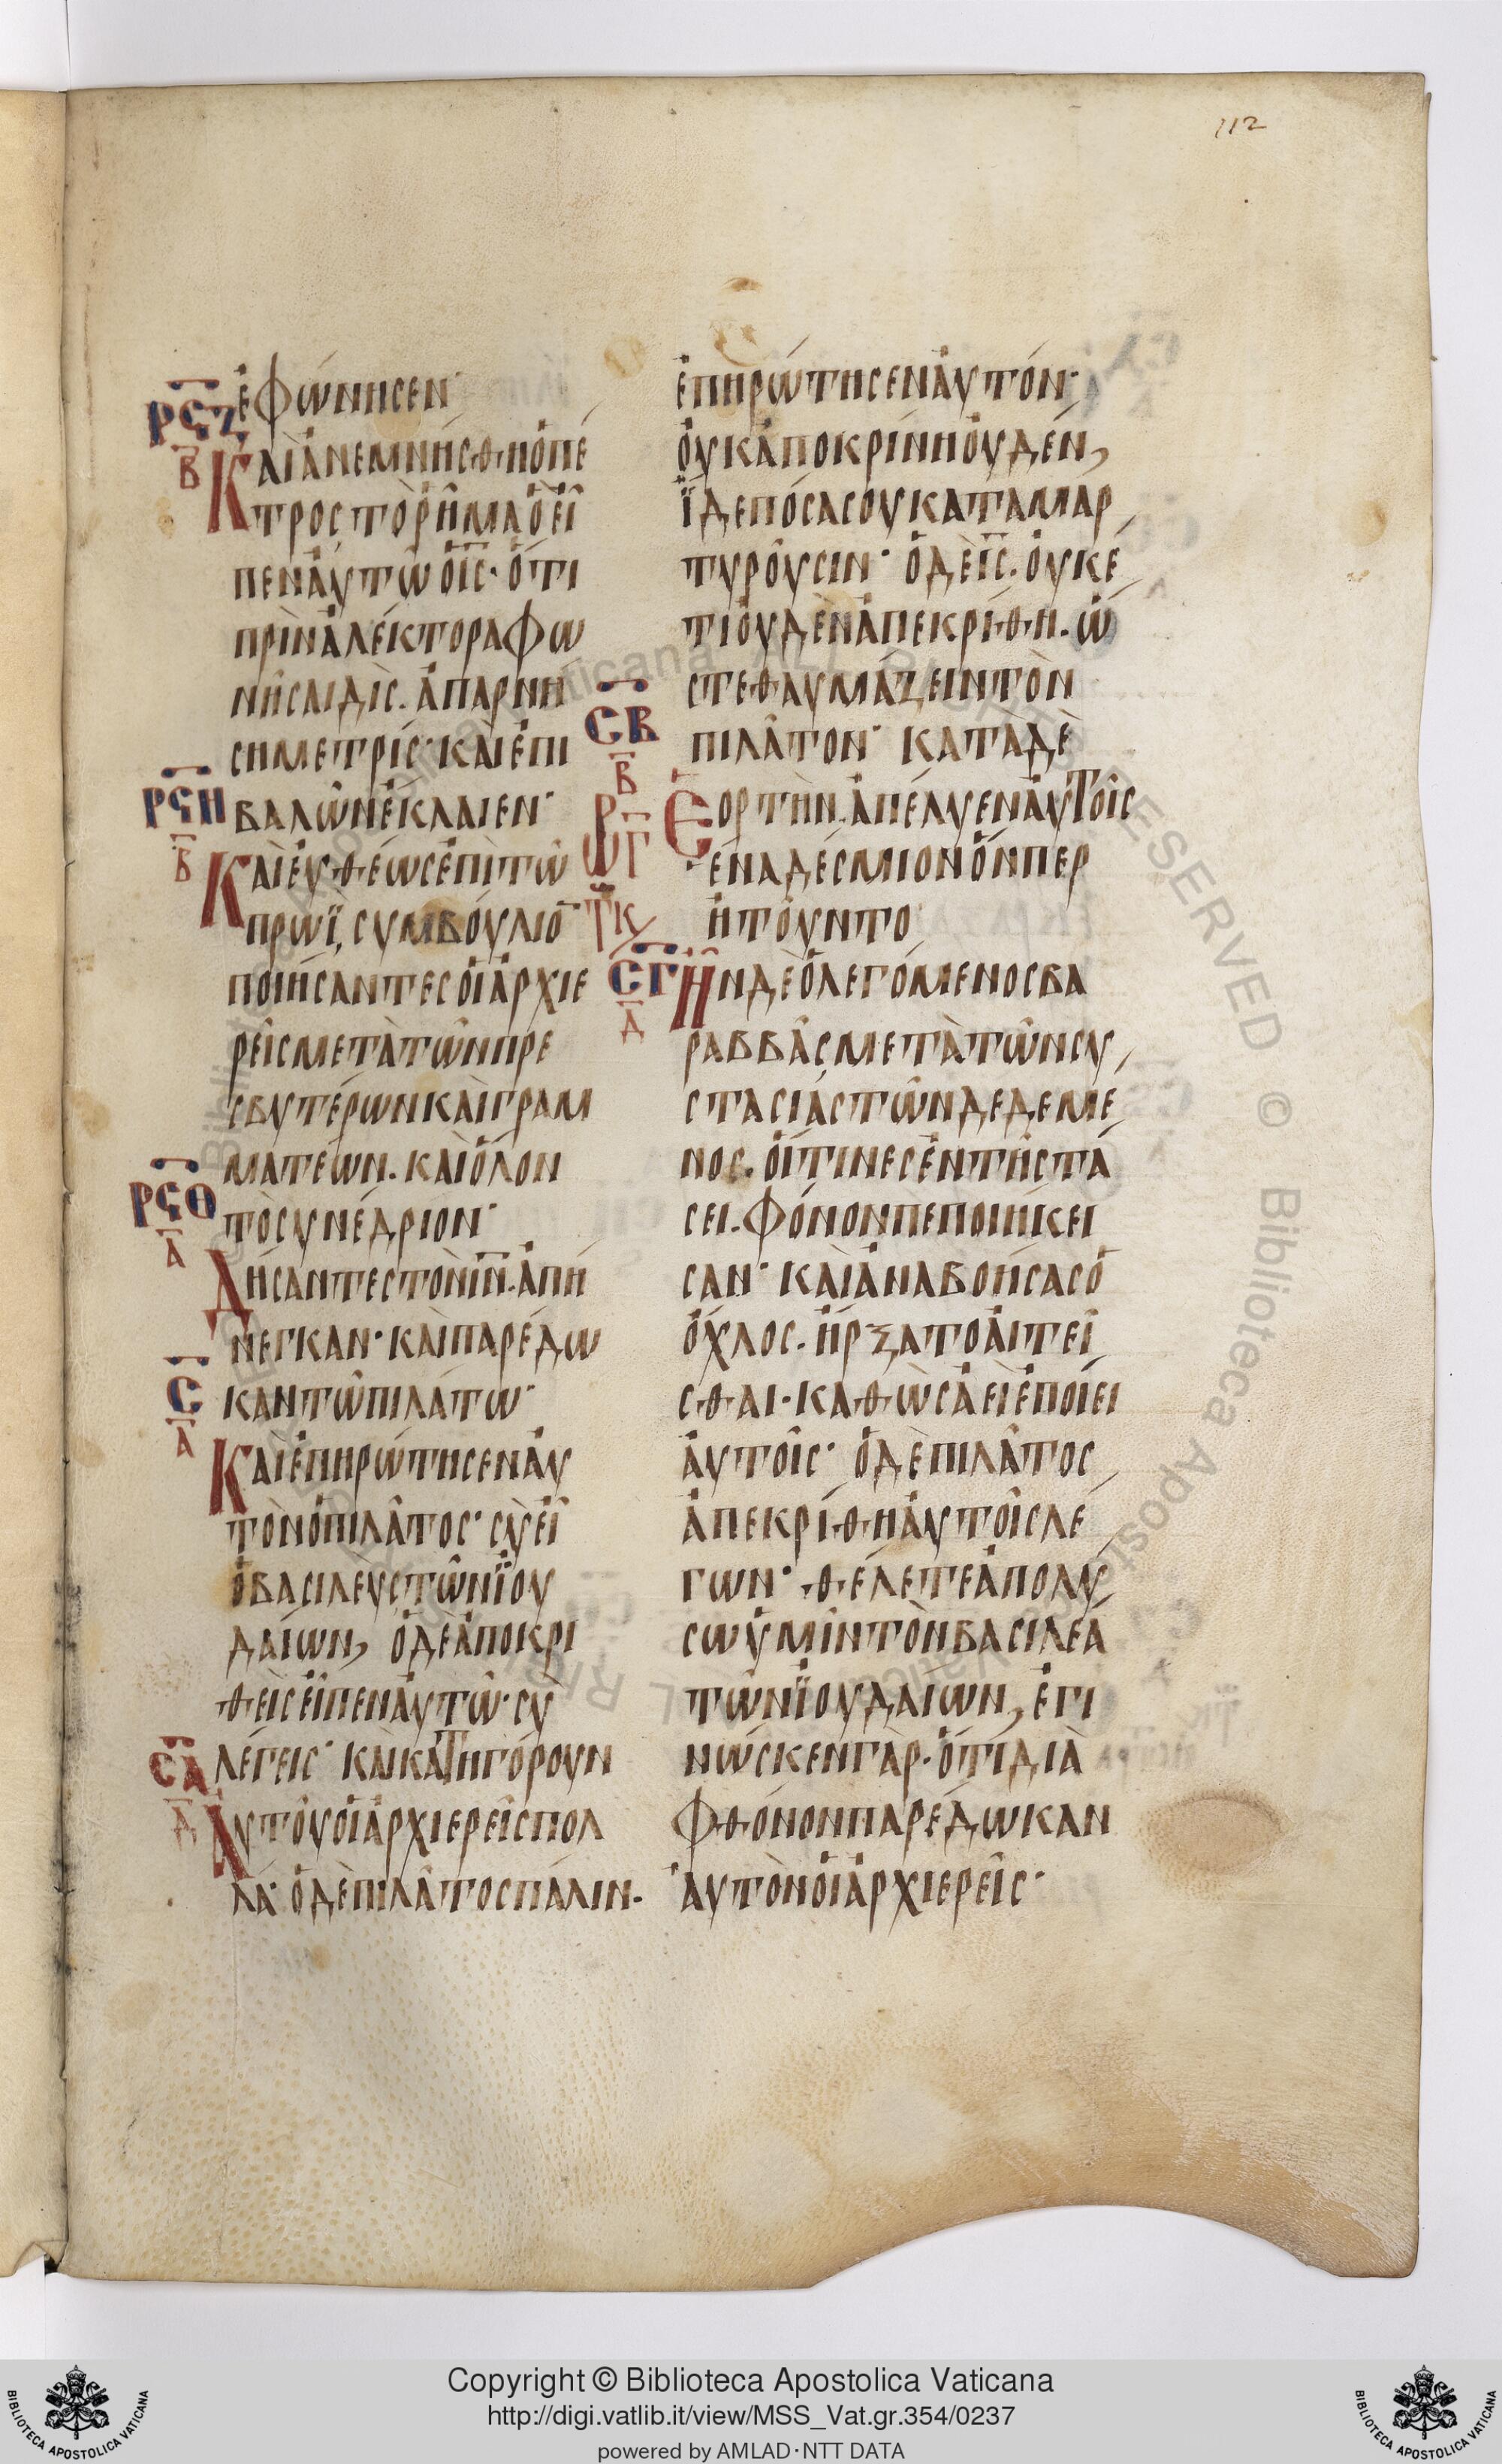 112
ρϟζ
β
ἐφώνησεν·
Καὶ ἀνεμνήσθη ὁ πέ
τρος τὸ ῥῆμα ὃ εἶ
πεν αὐτῷ ὁ ι̅ς̅· ὅτι
πρὶν ἀλέκτορα φω
νῆσαι δὶς. ἀπαρνή
ση με τρίς· καὶ ἐπι
ρϟη
β
βαλὼν ἔκλαιεν·
Καὶ εὐθέως ἐπὶ τῶ
πρωῒ, συμβούλιο̅
ποιήσαντες οἱ ἀρχιε
ρεῖς μετὰ τῶν πρε
σβυτέρων καὶ γραμ
ματέων. καὶ ὅλον
ρϟθ
α
τὸ συνέδριον·
Δήσαντες τὸν ι̅ν̅. ἀπή
νεγκαν· καὶ παρέδω
σ
α
καν τῶ πιλάτω·
Καὶ ἐπηρώτησεν αὐ
τὸν ὁ πιλᾶτος· σὺ εἶ
ὁ βασιλεὺς τῶν ἰ̈ου
δαίων, ὁ δὲ ἀποκρι
θεὶς εἶπεν αὐτῶ· σὺ
σα
δ
λέγεις· καὶ κατηγόρουν
Αὐτοῦ οἱ ἀρχιερεῖς πολ
λά· ὁ δὲ πιλᾶτος πάλιν.
ἐπηρώτησεν αὐτόν·
οὐκ ἀποκρίνη οὐδέν,
ἴ̈δε πόσα σου καταμαρ
τυροῦσιν· ὁ δὲ ι̅ς̅. οὐκέ
τι οὐδὲν ἀπεκρίθη. ὥ
στε θαυμάζειν τὸν
σβ
β
πιλᾶτον· κατὰ δὲ
Ἑορτὴν. ἀπέλυεν αὐτοῖς
ἕνα δέσμιον ὅνπερ
ἠτοῦντο
σγ
δ
Ἦν δὲ ὁ λεγόμενος βα
ραββᾶς, μετὰ τῶν συ
στασιαστῶν δεδεμέ
νος. οἵτινες ἐν τῆ στά
σει. φόνον πεποιήκει
σαν· καὶ ἀναβοήσας ὁ
ὄχλος. ἤρξατο αἰτεῖ
σθαι. καθὼς ἀεὶ ἐποίει
αὐτοῖς· ὁ δὲ πιλᾶτος
ἀπεκρίθη αὐτοῖς λέ
γων· θέλετε ἀπολύ
σω ὑμῖν τὸν βασιλέα
τῶν ἰ̈ουδαίων, ἐγί
νωσκεν γὰρ. ὅτι διὰ
φθόνον παρέδωκαν
αὐτὸν οἱ ἀρχιερεῖς·
Copyright © Biblioteca Apostolica Vaticana
http://digi.vatlib.it/view/MSS_Vat.gr.354/0237
powered by AMLAD·NTT DATA
BIBLIOTECA APOSTOLICA VATICANA
BIBLIOTECA APOSTOLICA VATICANA